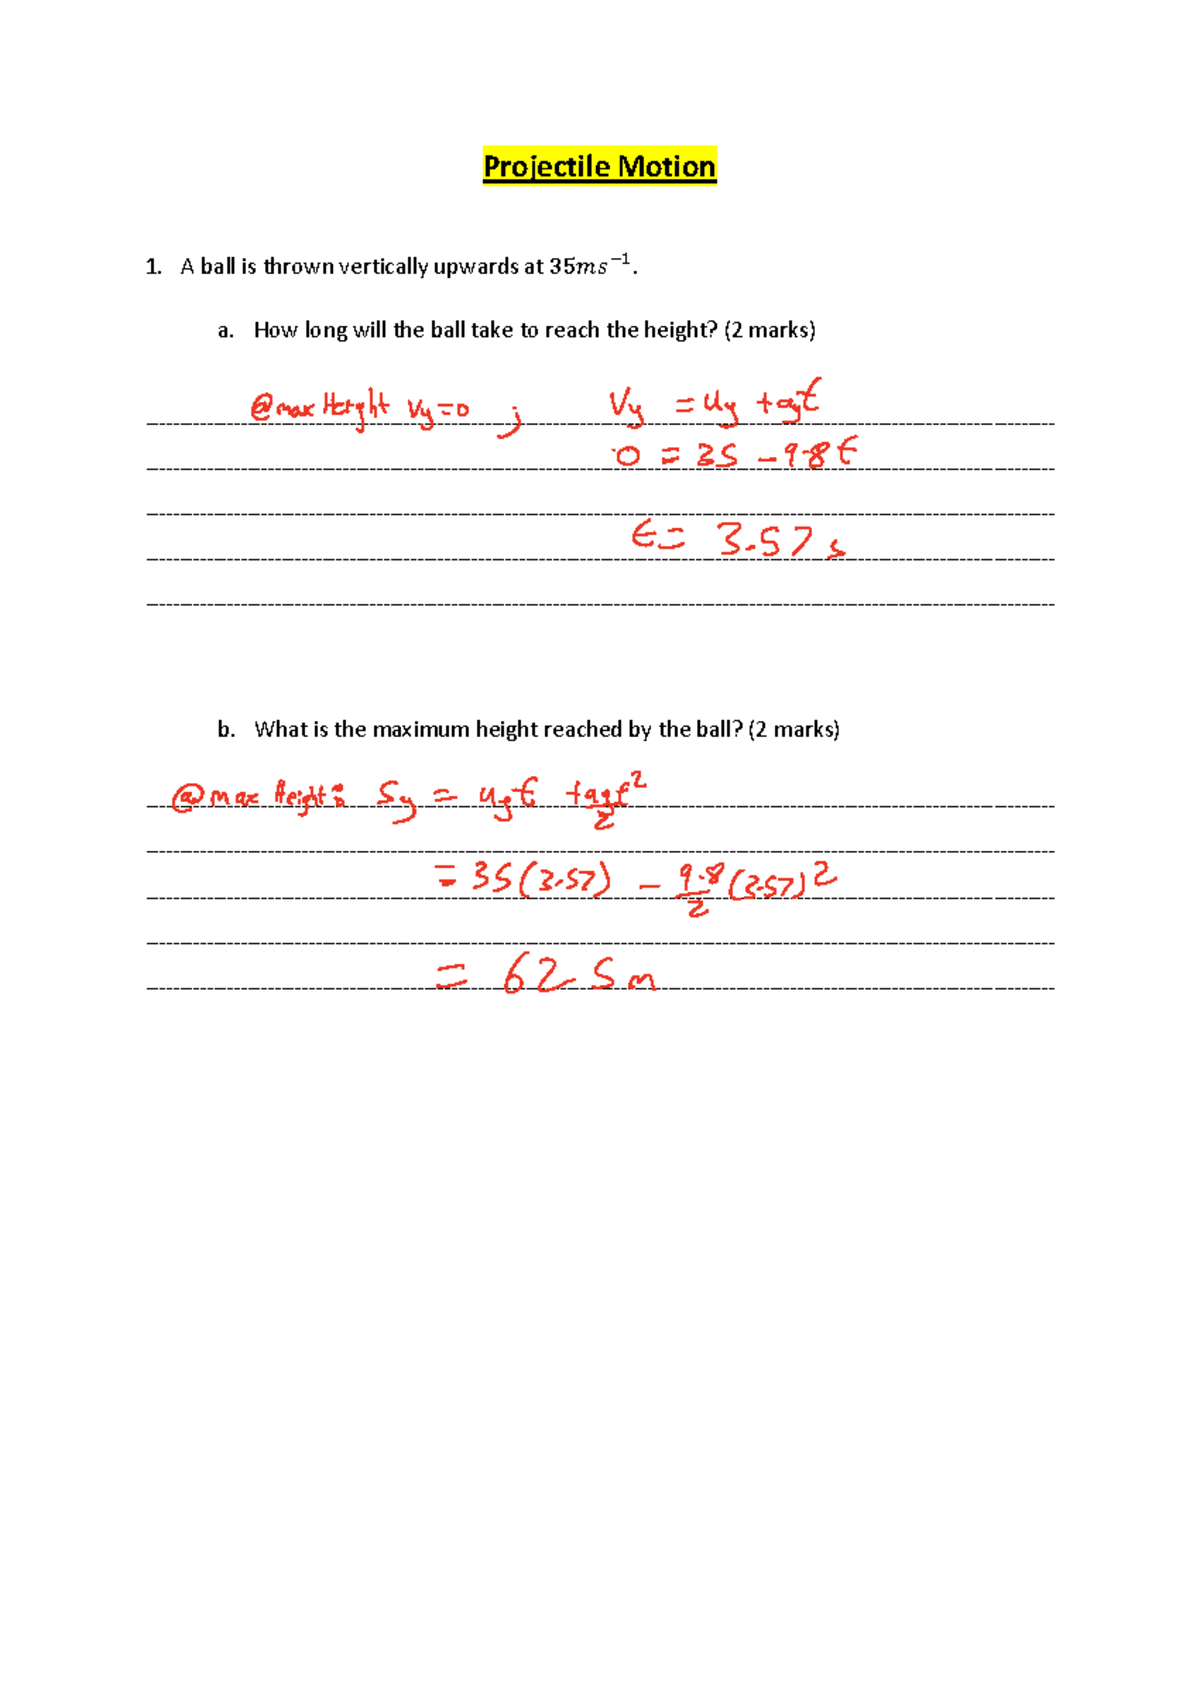 Projectile Motion
1. A ball is thrown vertically upwards at 35ms⁻¹.
a. How long will the ball take to reach the height? (2 marks)
@ max Height Vy=0 ; Vy = uy + ayt
0 = 35 - 9.8t
t = 3.57 s
b. What is the maximum height reached by the ball? (2 marks)
@ max Height: Sy = uyt + ayt²/2
= 35(3.57) - 9.8/2 (3.57)²
= 62.5 m